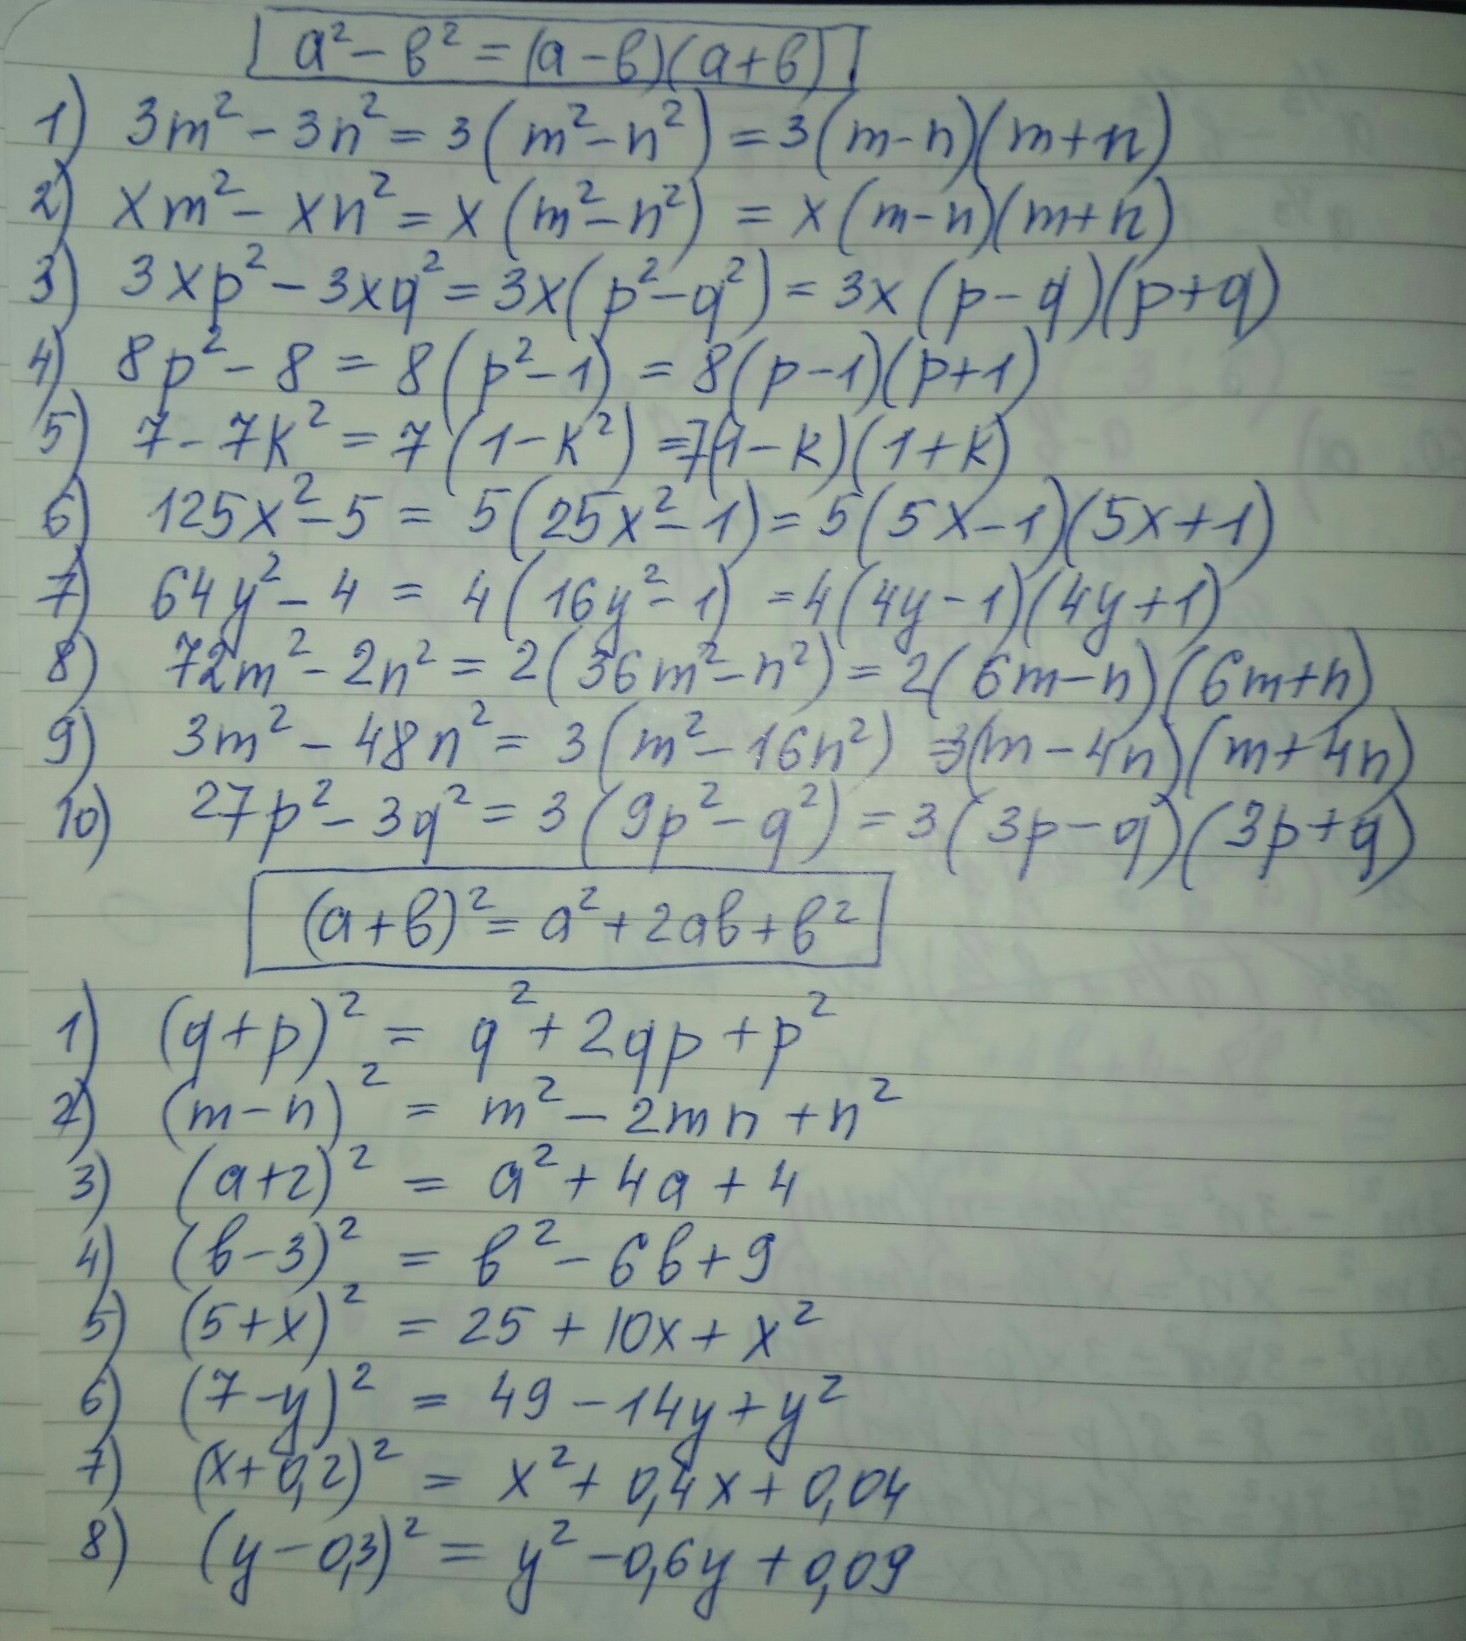 a² - в² = (a - в)(a + в)
1) 3m² - 3n² = 3(m² - n²) = 3(m - n)(m + n)
2) xm² - xn² = x(m² - n²) = x(m - n)(m + n)
3) 3xp² - 3xq² = 3x(p² - q²) = 3x(p - q)(p + q)
4) 8p² - 8 = 8(p² - 1) = 8(p - 1)(p + 1)
5) 7 - 7k² = 7(1 - k²) = 7(1 - k)(1 + k)
6) 125x² - 5 = 5(25x² - 1) = 5(5x - 1)(5x + 1)
7) 64y² - 4 = 4(16y² - 1) = 4(4y - 1)(4y + 1)
8) 72m² - 2n² = 2(36m² - n²) = 2(6m - n)(6m + n)
9) 3m² - 48n² = 3(m² - 16n²) = 3(m - 4n)(m + 4n)
10) 27p² - 3q² = 3(9p² - q²) = 3(3p - q)(3p + q)
(a + в)² = a² + 2aв + в²
1) (q + p)² = q² + 2qp + p²
2) (m - n)² = m² - 2mn + n²
3) (a + 2)² = a² + 4a + 4
4) (в - 3)² = в² - 6в + 9
5) (5 + x)² = 25 + 10x + x²
6) (7 - y)² = 49 - 14y + y²
7) (x + 0,2)² = x² + 0,4x + 0,04
8) (y - 0,3)² = y² - 0,6y + 0,09